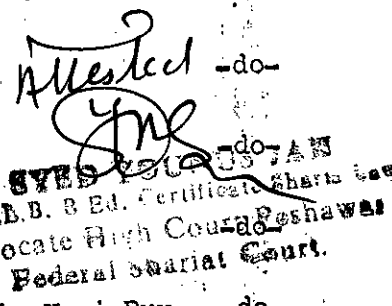 Attested -do-
-do-
SYED YOUNUS JAN
L.B. B Ed. Certificate Sharia Law
ocate High Court Peshawar
-do-
Federal Shariat Court.
-do-